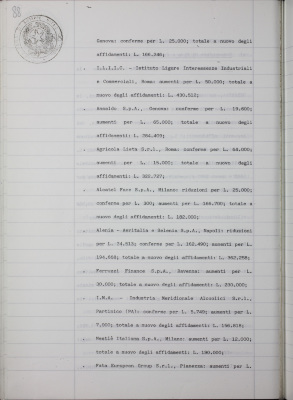 Genova: conferme per L. 25.000; totale a nuovo degli
affidamenti: L. 156.246;
- I.L.I.I.C. - Istituto Ligure Interessenze Industriali
e Commerciali, Roma: aumenti per L. 50.000; totale a
nuovo degli affidamenti: L. 430.512;
- Ansaldo S.p.A., Genova: conferme per L. 13.600;
aumenti per L. 65.000; totale a nuovo degli
affidamenti: L. 264.409;
- Agricola lieta S.r.l., Roma: conferme per L. 48.000;
aumenti per L. 15.000; totale a nuovo degli
affidamenti: L. 322.727;
- Alcatel Face S.p.A., Milano: riduzioni per L. 25.000;
conferme per L. 200; aumenti per L. 164.700; totale a
nuovo degli affidamenti: L. 182.000;
- Alenia - Aeritalia e Selenia S.p.A., Napoli: riduzioni
per L. 24.513; conferme per L. 162.490; aumenti per L.
194.658; totale a nuovo degli affidamenti: L. 362.258;
- Ferruzzi Finance S.p.A., Ravenna: aumenti per L.
30.000; totale a nuovo degli affidamenti: L. 230.000;
- I.M.A. - Industria Meridionale Alcoolici S.r.l.,
Partinico (PA): conferme per L. 5.749; aumenti per L.
7.000; totale a nuovo degli affidamenti: L. 156.619;
- Mobil Italiana S.p.A., Milano: aumenti per L. 12.000;
totale a nuovo degli affidamenti: L. 190.000;
- Fata European Group S.r.l., Pianezza: aumenti per L.